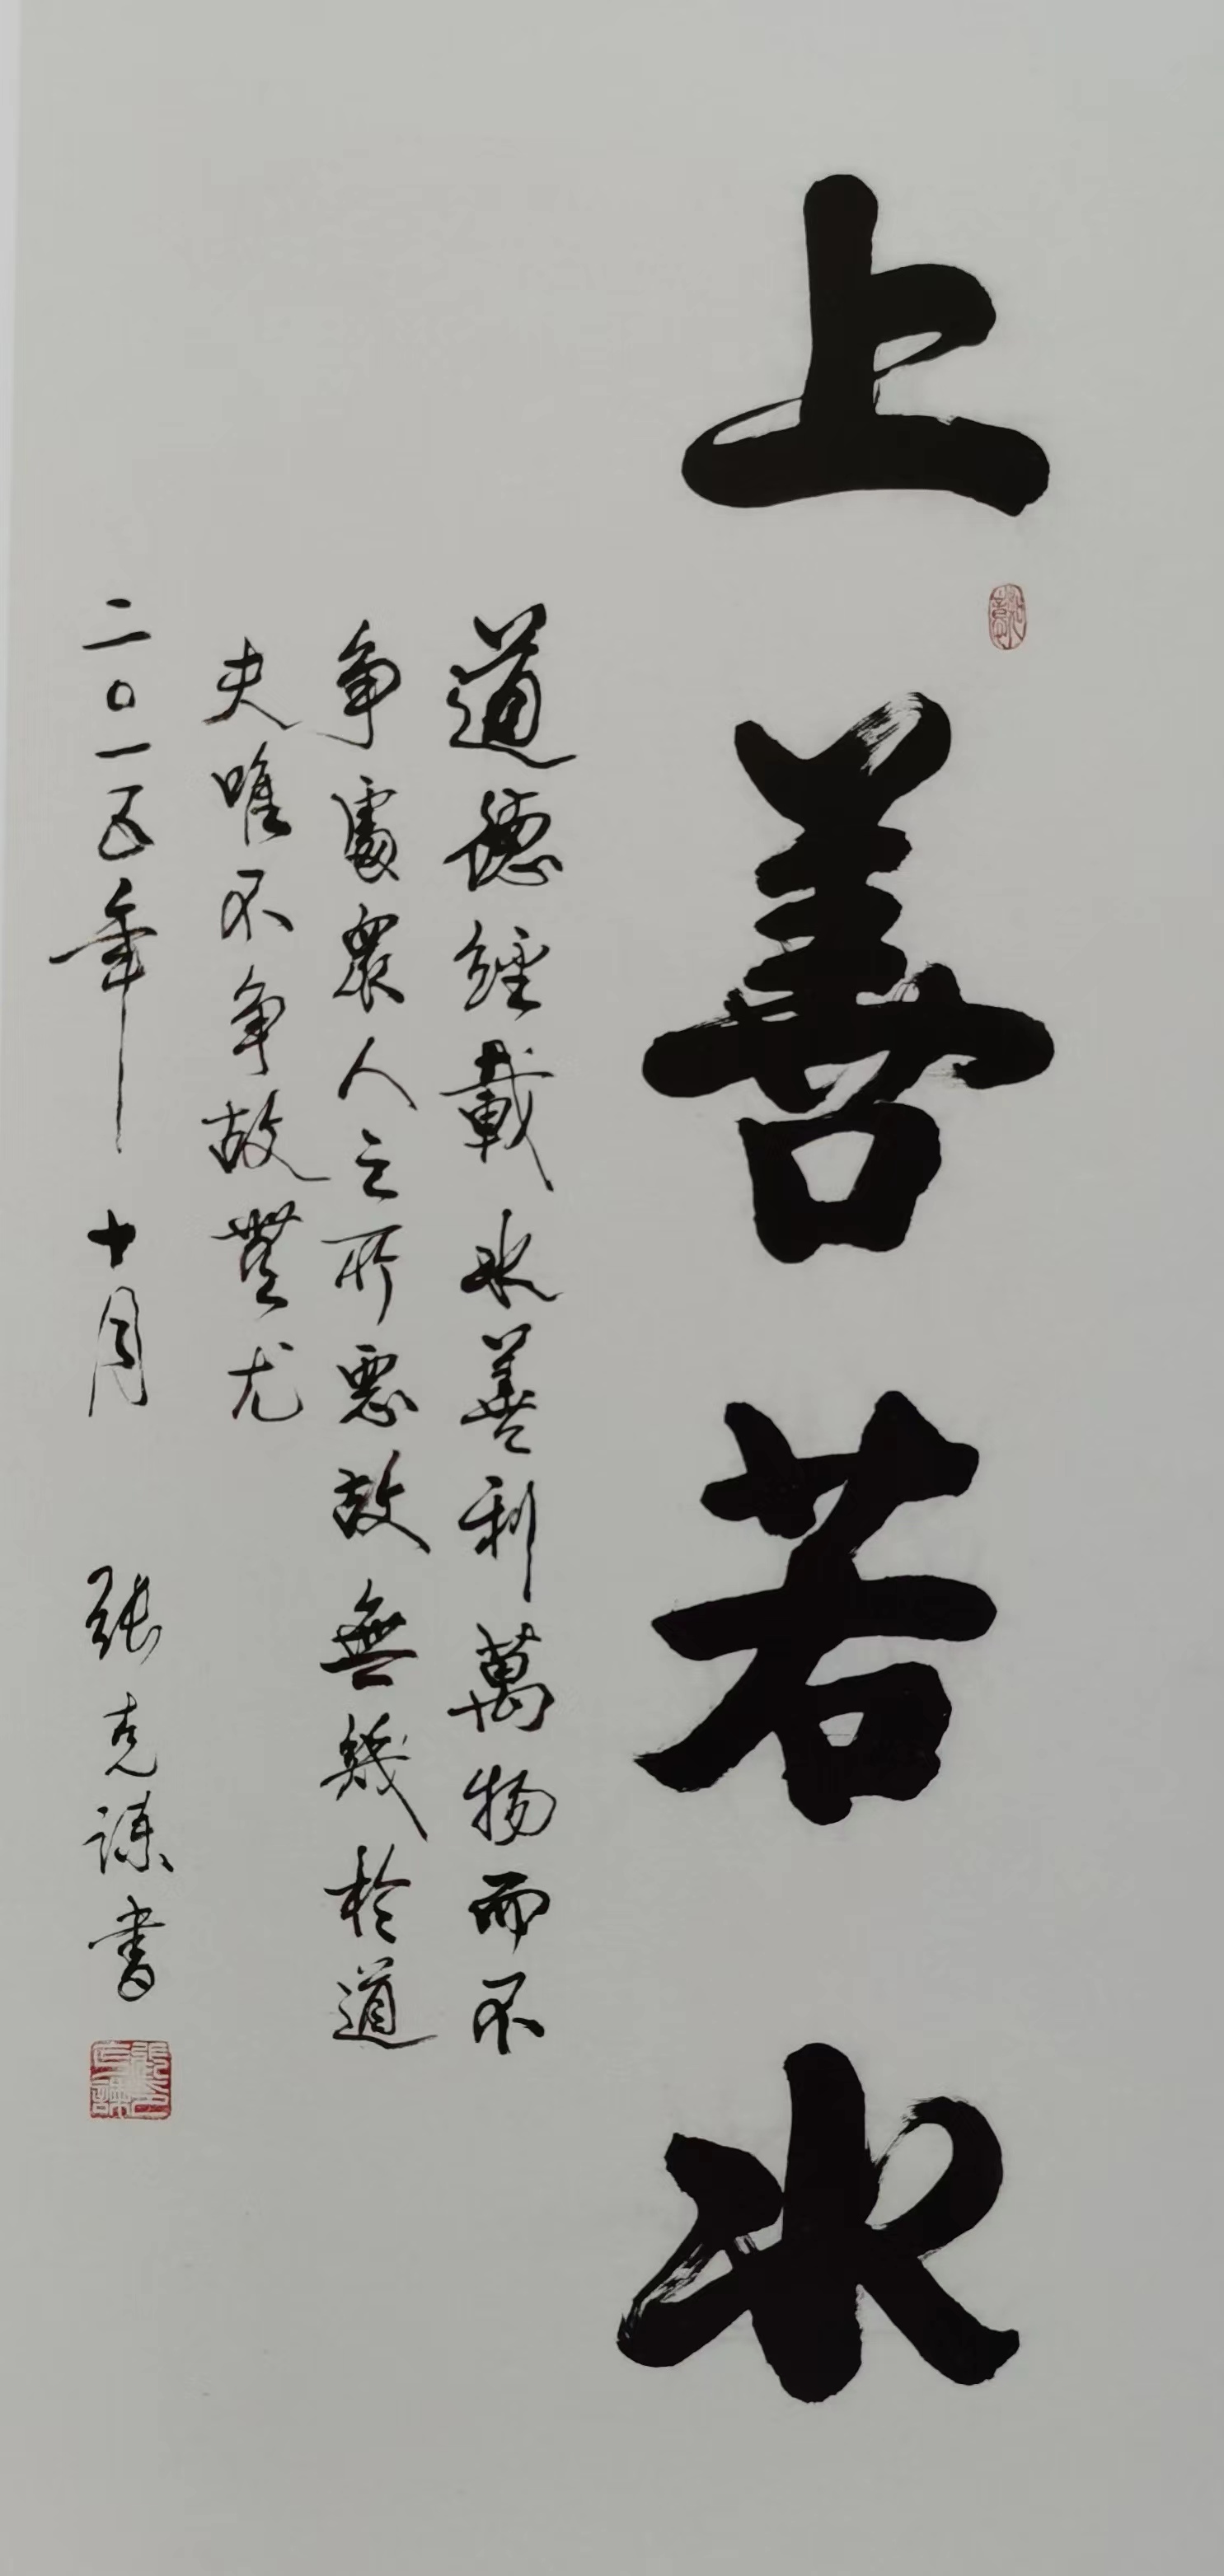 上善若水
道德經載水善利萬物而不
争處衆人之所惡故無幾於道
夫唯不争故無尤
二〇一五年十月 張克謙書